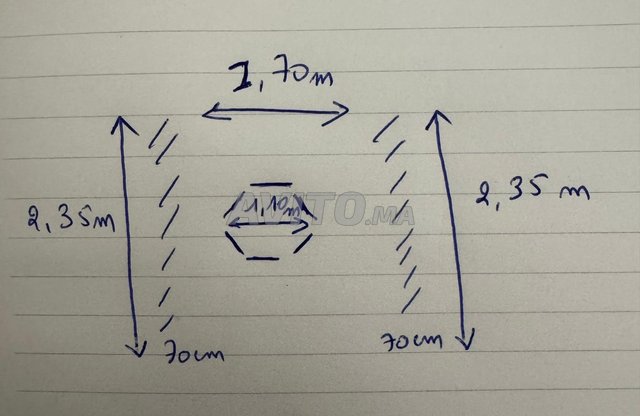 1,70m
2,35m
1,10m
AVITO.MA
2,35 m
70cm
70cm